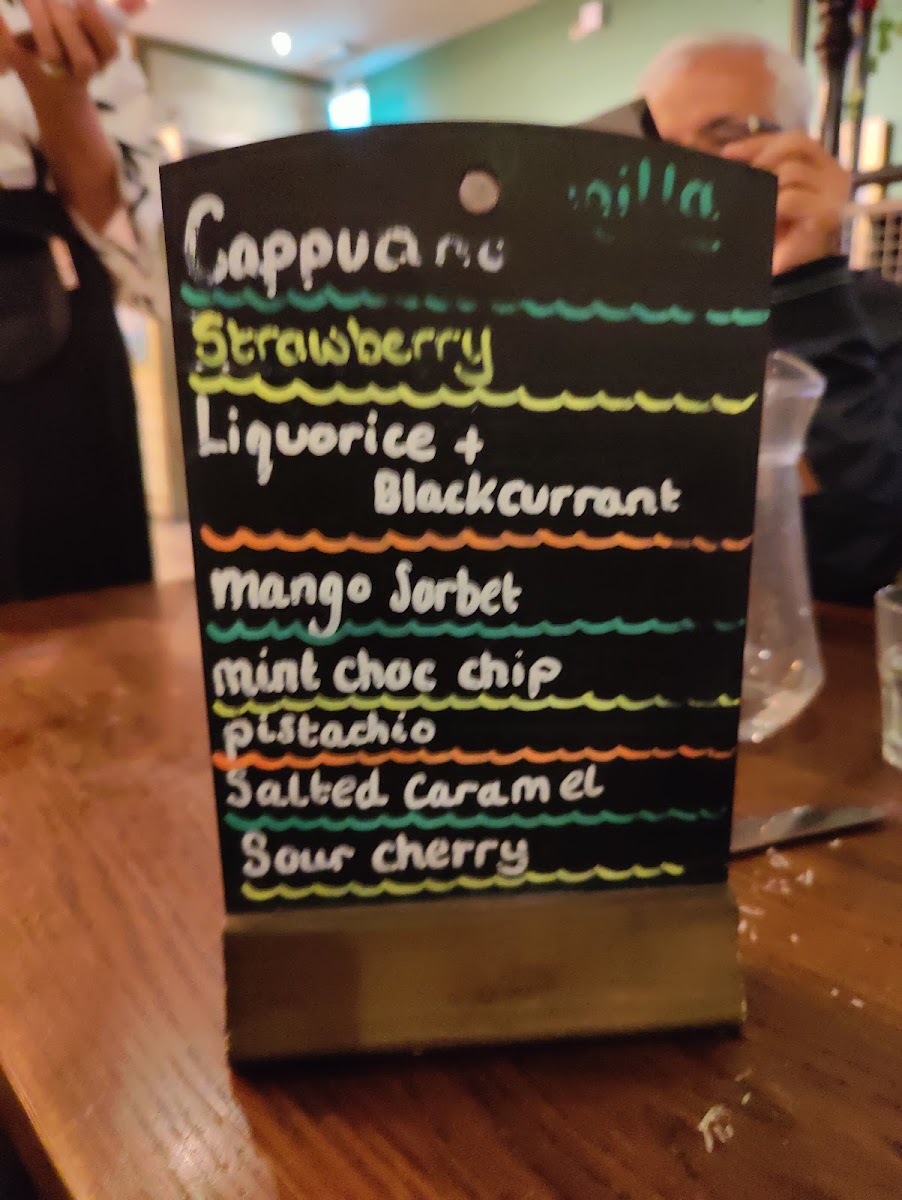 Cappucino
Strawberry
Liquorice +
Blackcurrant
mango Sorbet
mint choc chip
pistachio
Salted caramel
Sour cherry